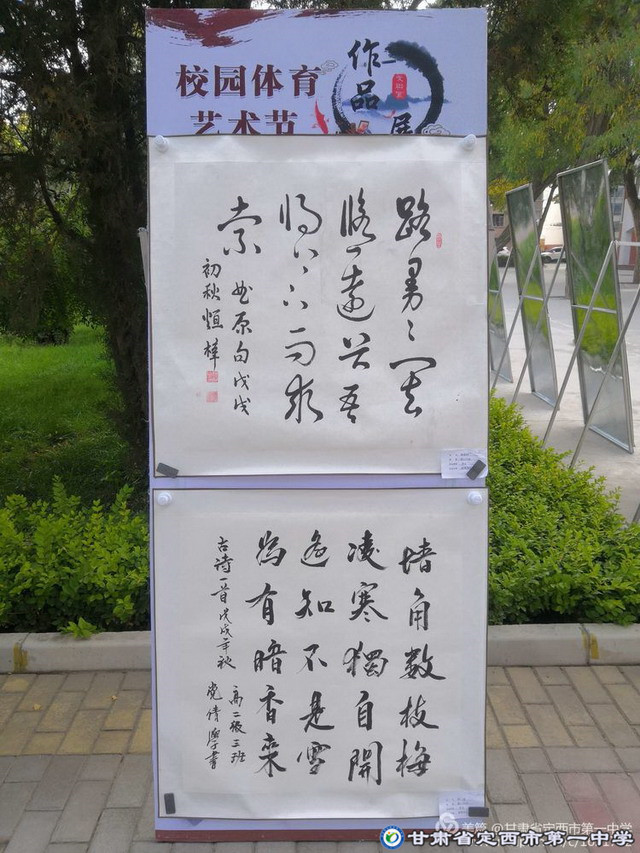 校园体育
艺术节
作品展
路曼曼其
脩遠兮吾
将上下而求
索
屈原句戊戌
初秋烜樟
墙角数枝梅
凌寒獨自開
遥知不是雪
為有暗香来
古诗一首戊戌年秋
高二级三班
党倩學書
美篇 @甘肃省定西市第一中学
甘肃省定西市第一中学